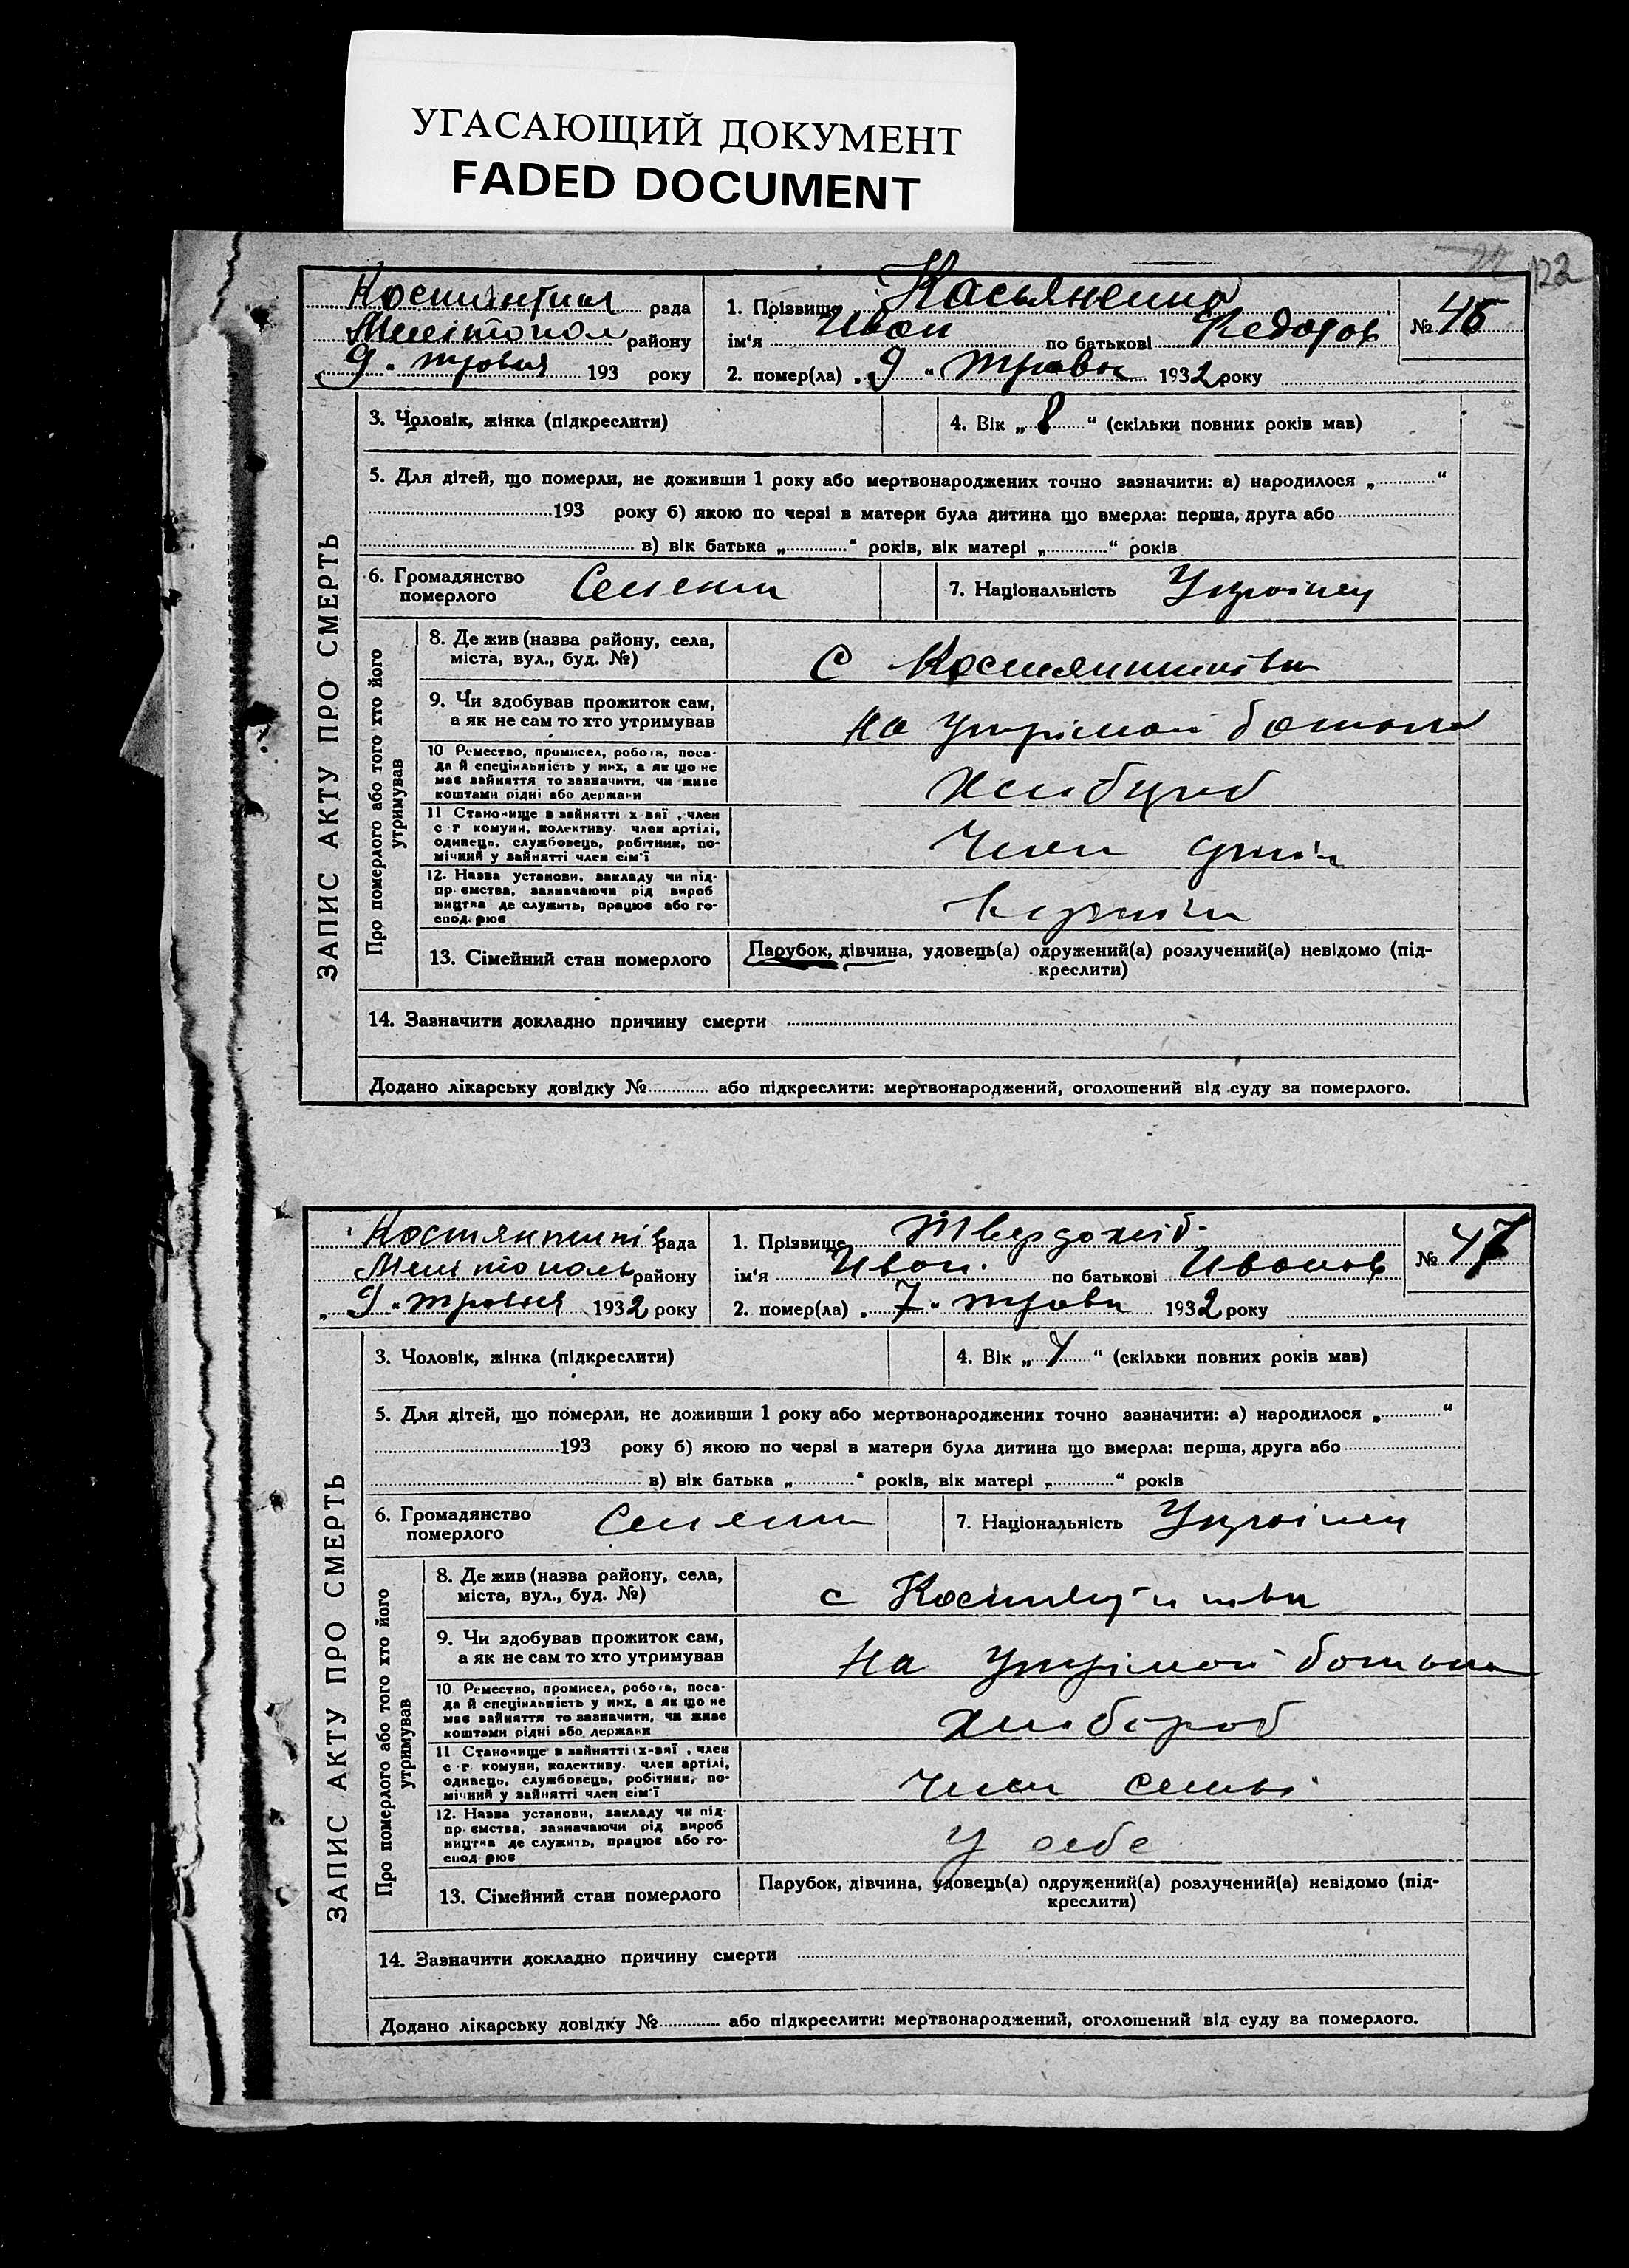 УГАСАЮЩИЙ ДОКУМЕНТ
FADED DOCUMENT
122
рада
Мелітопол району
„9" травня 193 року
1. Прізвище
ім'я Иван по батькові Федоров
2. помер(ла) „9" травня 1932 року
№ 45
ЗАПИС АКТУ ПРО СМЕРТЬ
3. Чоловік, жінка (підкреслити)
4. Вік „8" (скільки повних років мав)
5. Для дітей, що померли, не доживши 1 року або мертвонароджених точно зазначити: а) народилося „ "
193 року б) якою по черзі в матери була дитина що вмерла: перша, друга або
в) вік батька „ " років, вік матері „ " років
6. Громадянство померлого
7. Національність Українец
Про померлого або того хто його утримував
8. Де жив (назва району, села,
міста, вул., буд. №)
с
9. Чи здобував прожиток сам,
а як не сам то хто утримував
на
10 Ремество, промисел, робота, поса-
да й спеціяльність у них, а як що не
має зайняття то зазначити, чи живе
коштами рідні або держави
Хлебороб
11 Становище в зайнятті х-ві , член
с-г комуни, колективу. член артілі,
одинець, службовець, робітник, по-
мічний у зайнятті член сім'ї
Член
12. Назва установи, закладу чи під-
приємства, зазначаючи рід вироб
ництва де служить, працює або го-
сподарює
13. Сімейний стан померлого
Парубок, дівчина, удовець(а) одружений(а) розлучений(а) невідомо (під-
креслити)
14. Зазначити докладно причину смерти
Додано лікарську довідку № або підкреслити: мертвонароджений, оголошений від суду за померлого.
рада
Мелітополь району
„9" травня 1932 року
1. Прізвище Твердохліб
ім'я Иван по батькові Иванов
2. помер(ла) „7" травн 1932 року
№ 47
ЗАПИС АКТУ ПРО СМЕРТЬ
3. Чоловік, жінка (підкреслити)
4. Вік „ " (скільки повних років мав)
5. Для дітей, що померли, не доживши 1 року або мертвонароджених точно зазначити: а) народилося „ "
193 року б) якою по черзі в матери була дитина що вмерла: перша, друга або
в) вік батька „ " років, вік матері „ " років
6. Громадянство померлого
7. Національність Українец
Про померлого або того хто його утримував
8. Де жив (назва району, села,
міста, вул., буд. №)
с
9. Чи здобував прожиток сам,
а як не сам то хто утримував
На
10 Ремество, промисел, робота, поса-
да й спеціяльність у них, а як що не
має зайняття то зазначити, чи живе
коштами рідні або держави
Хлебороб
11 Становище в зайнятті х-ві , член
с-г. комуни, колективу. член артілі,
одинець, службовець, робітник, по-
мічний у зайнятті член сім'ї
Член
12. Назва установи, закладу чи під-
приємства, зазначаючи рід вироб
ництва де служить, працює або го-
сподарює
у себе
13. Сімейний стан померлого
Парубок, дівчина, удовець(а) одружений(а) розлучений(а) невідомо (під-
креслити)
14. Зазначити докладно причину смерти
Додано лікарську довідку № або підкреслити: мертвонароджений, оголошений від суду за померлого.